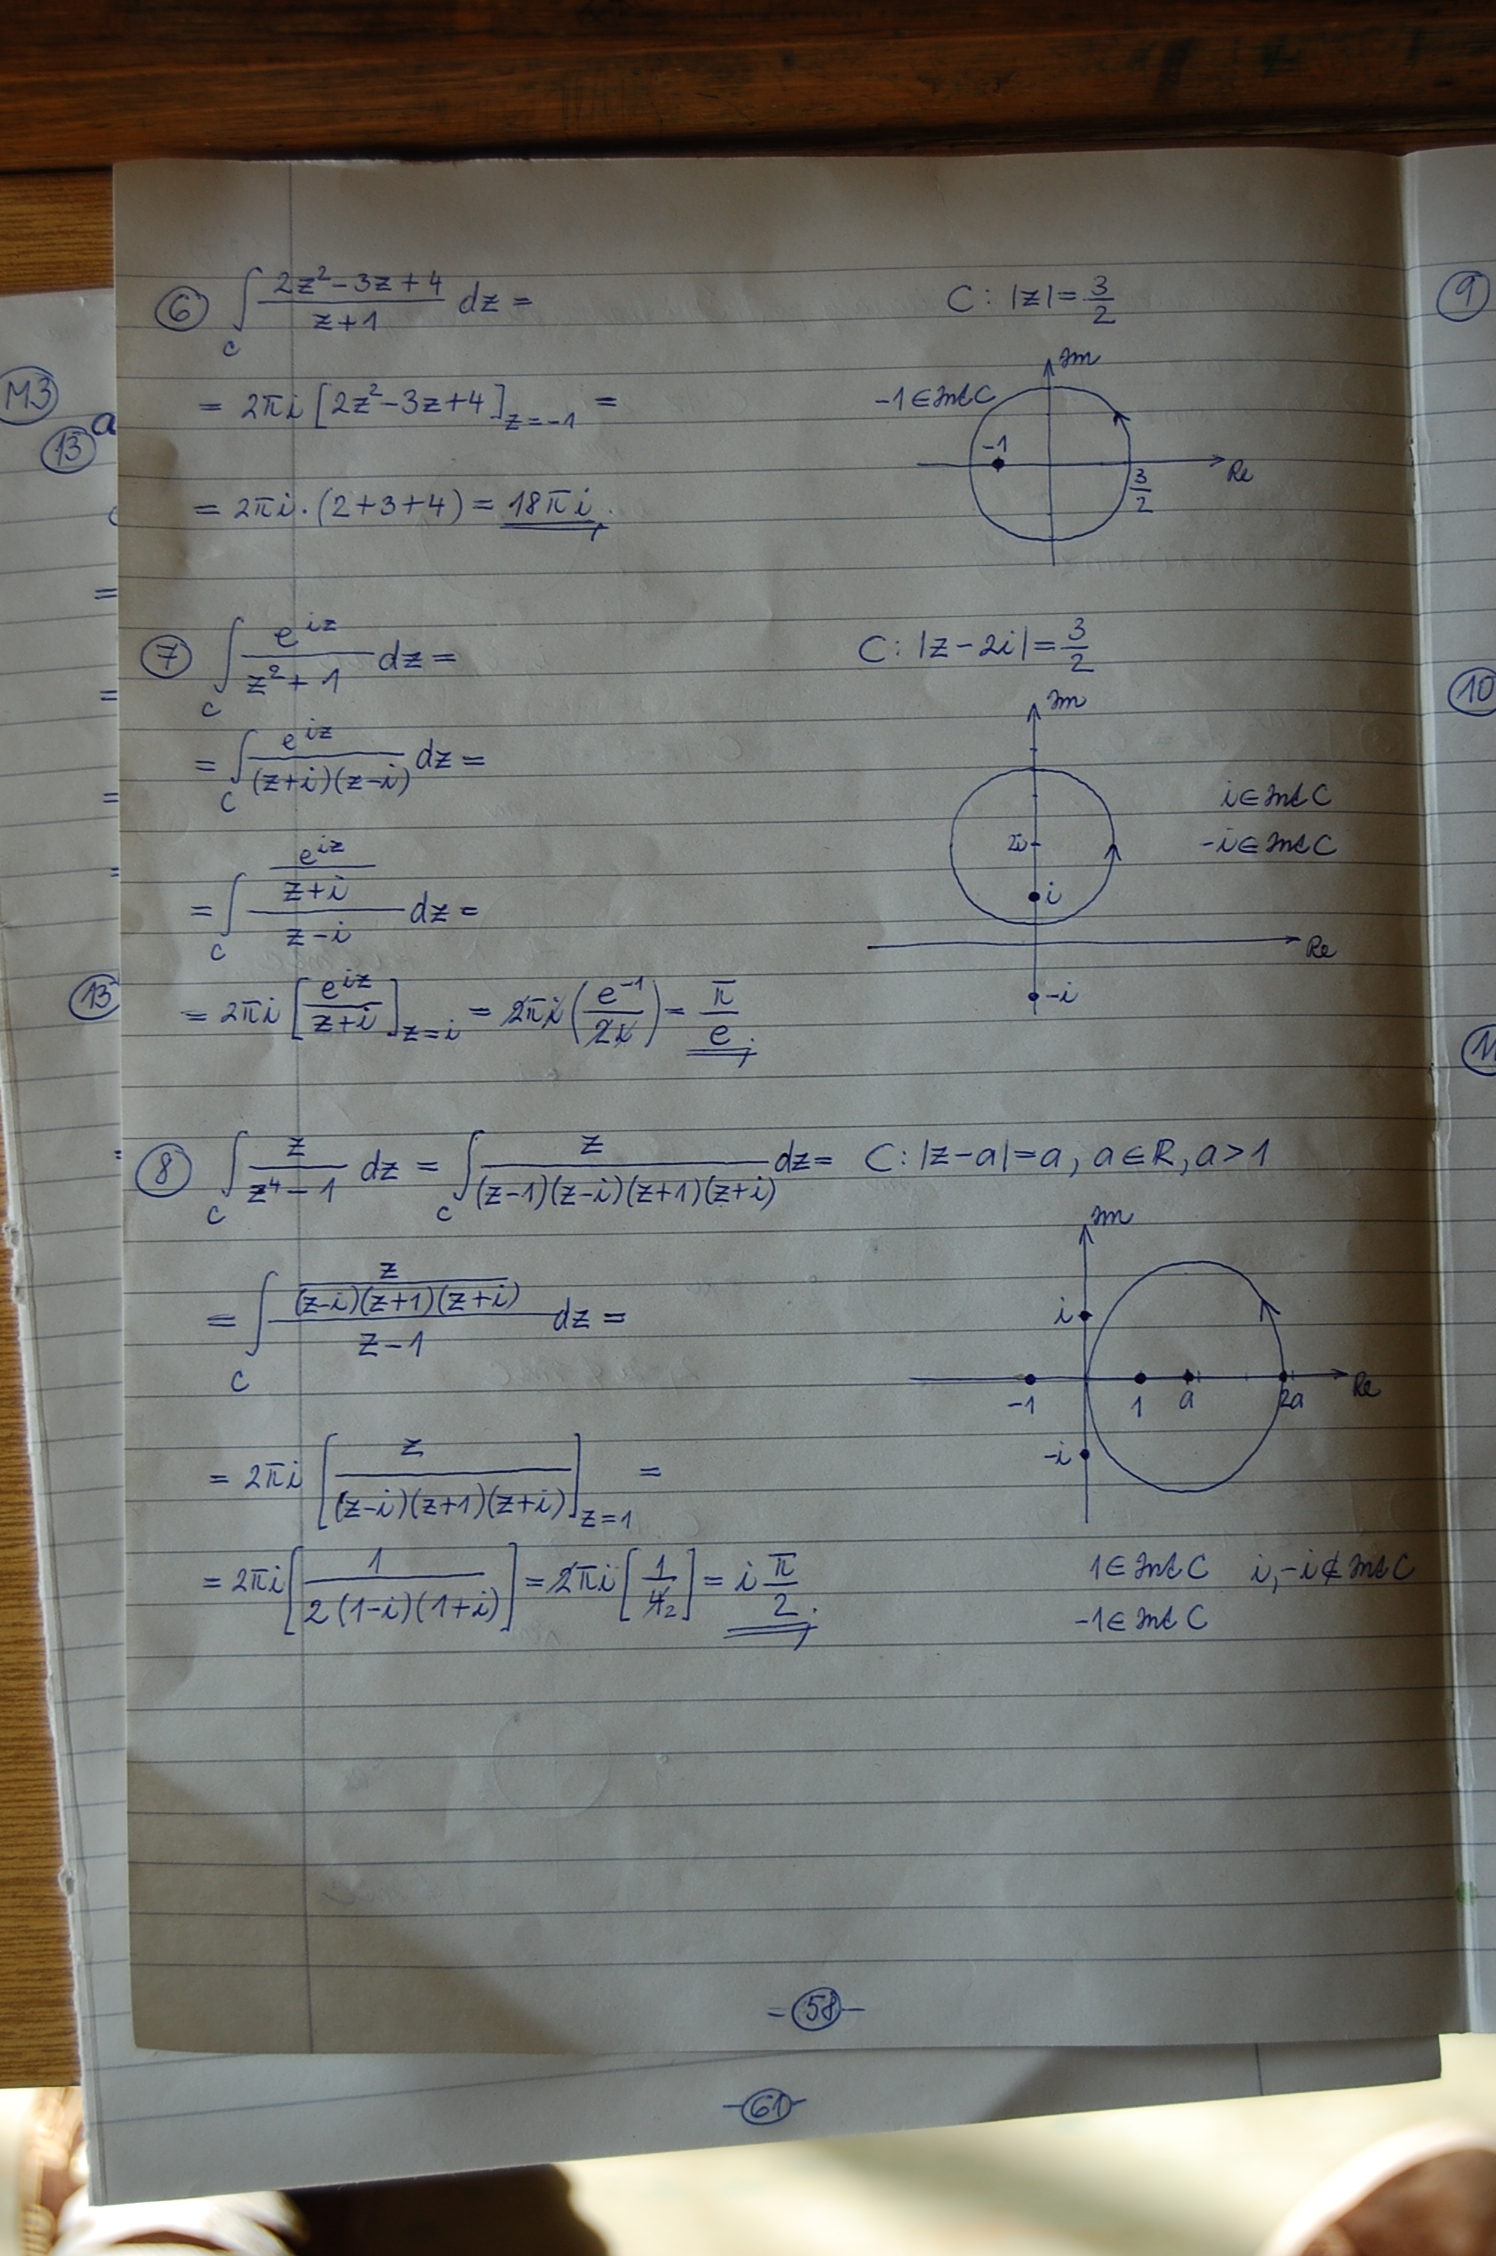 ⑥ ∫_C (2z²-3z+4)/(z+1) dz = C: |z|=3/2
= 2πi [2z²-3z+4]_{z=-1} =
= 2πi·(2+3+4) = 18πi.
-1∈Int C
Im
-1
Re
3/2
⑦ ∫_C e^{iz}/(z²+1) dz = C: |z-2i|=3/2
= ∫_C e^{iz}/((z+i)(z-i)) dz =
= ∫_C (e^{iz}/(z+i))/(z-i) dz =
= 2πi [e^{iz}/(z+i)]_{z=i} = 2πi (e^{-1}/2i) = π/e.
Im
2i
i
Re
-i
i∈Int C
-i∈Int C
⑧ ∫_C z/(z⁴-1) dz = ∫_C z/((z-1)(z-i)(z+1)(z+i)) dz = C: |z-a|=a, a∈R, a>1
= ∫_C (z/((z-i)(z+1)(z+i)))/(z-1) dz =
= 2πi [z/((z-i)(z+1)(z+i))]_{z=1} =
= 2πi [1/(2(1-i)(1+i))] = 2πi [1/4 2] = i π/2.
Im
i
-1
1
a
2a
Re
-i
1∈Int C i,-i∉Int C
-1∈Int C
-58-
-61-
M3
13
a
=
=
=
13
9
10
11